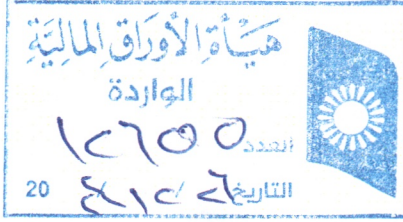 هيأة الأوراق المالية
الواردة
العدد ١٢٦٥٥
التاريخ ٢٦ / ١٢ / 20